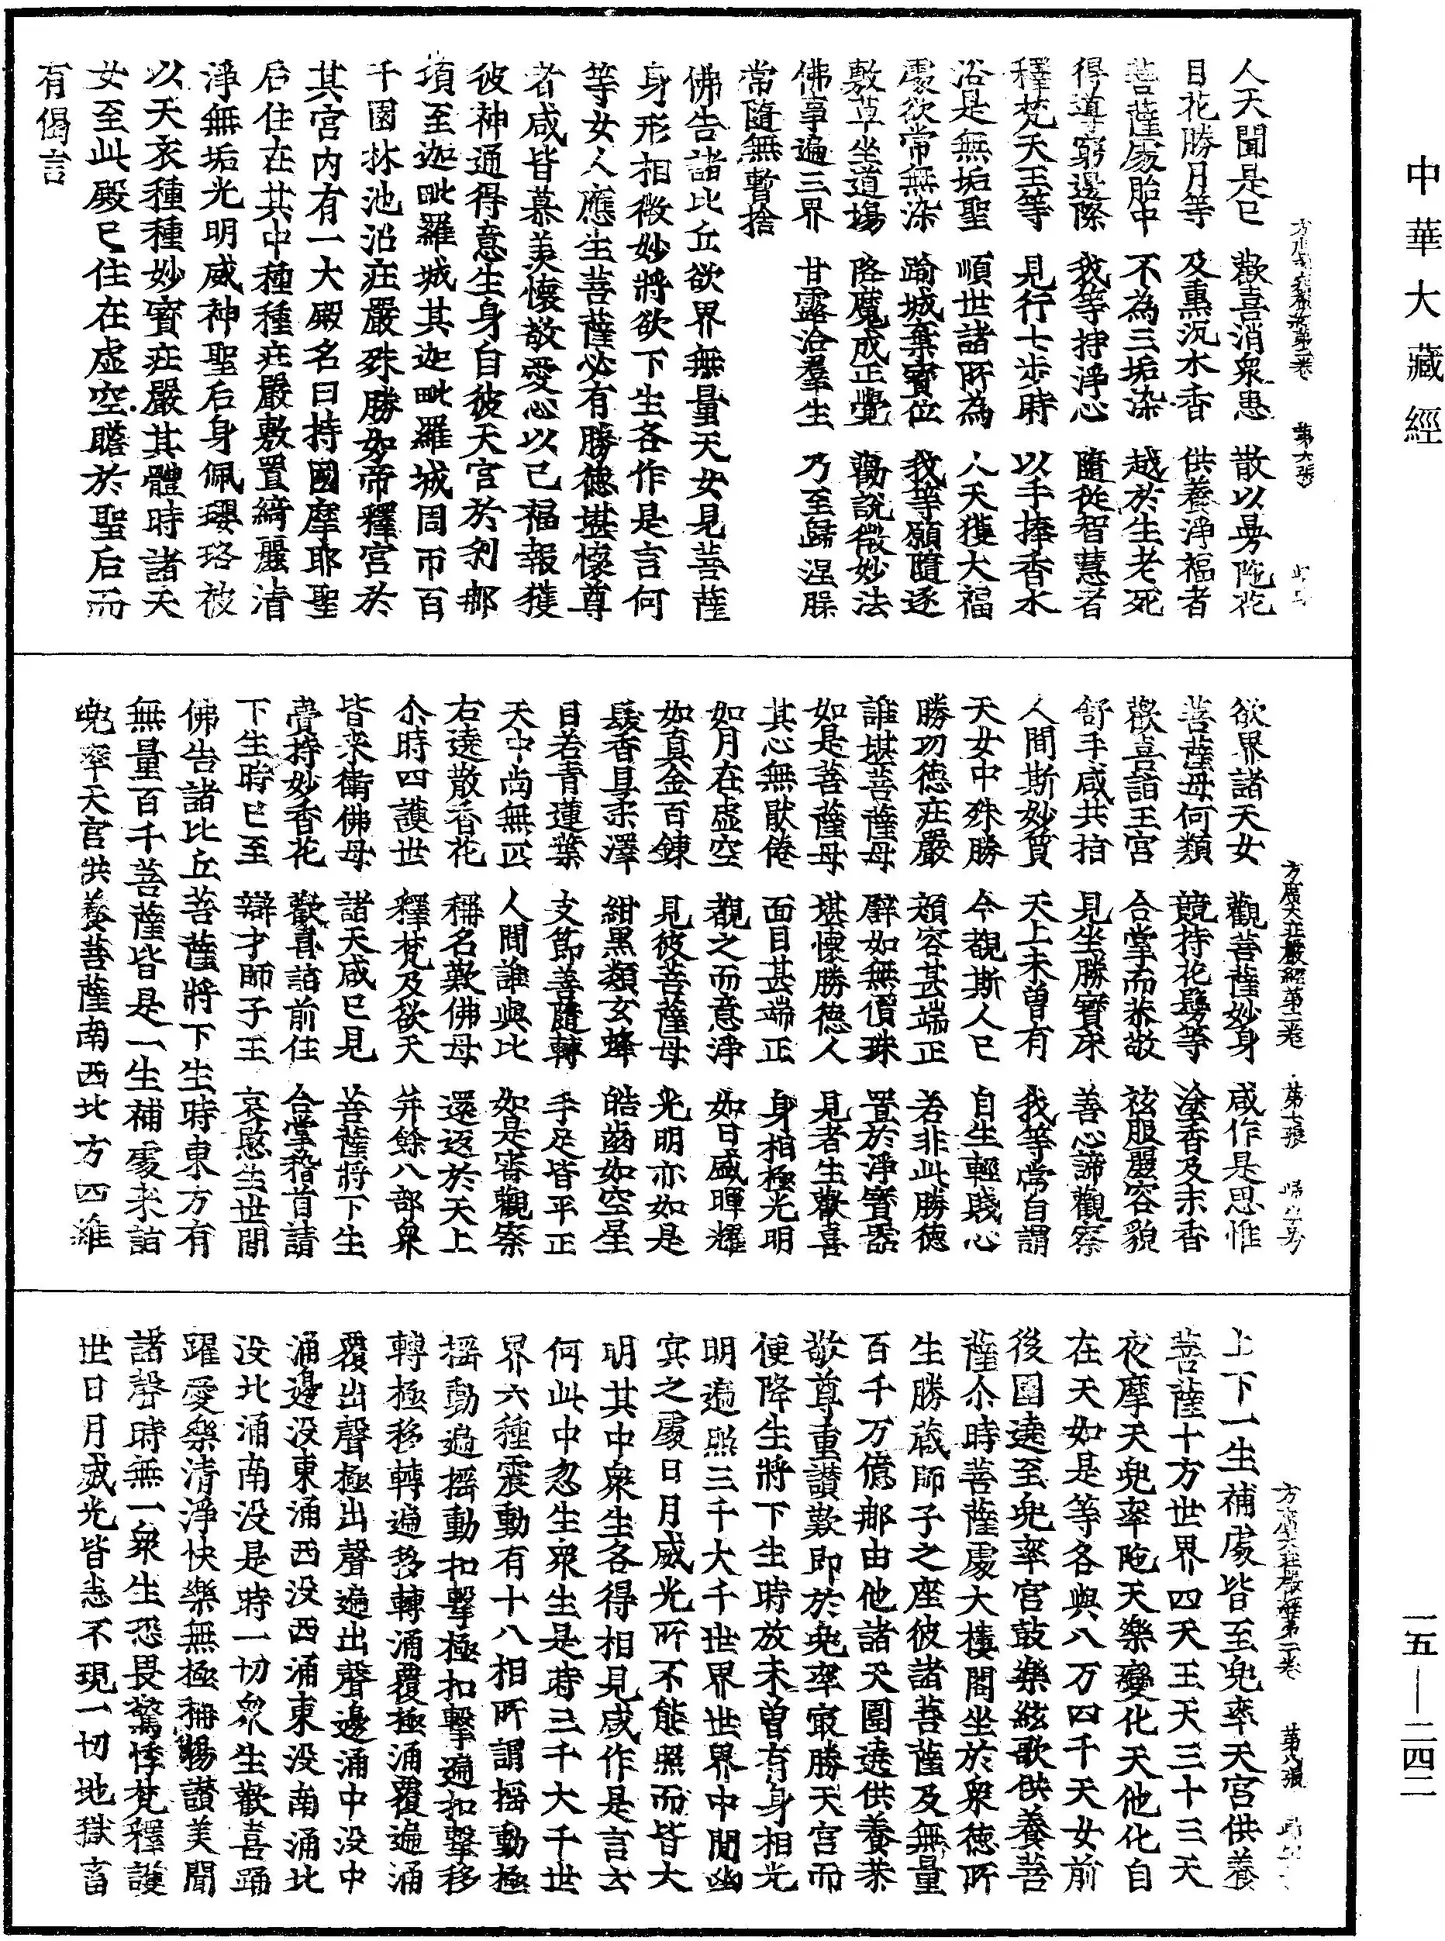 中華大藏經
方廣大莊嚴經第二卷 第六張
人天聞是已 歡喜消衆患 散以曼陁花
目花勝月等 及熏沉水香 供養淨福者
菩薩處胎中 不為三垢染 越於生老死
得導窮邊際 我等持淨心 隨從智慧者
釋梵天王等 見行七步時 以手捧香水
沿是無垢聖 順世諸所為 人天獲大福
處欲常無染 踰城棄寶位 我等願隨逐
敷草坐道場 降魔成正覺 勸說微妙法
佛事遍三界 甘露洽羣生 乃至歸涅槃
常隨無暫捨
佛告諸比丘欲界無量天女見菩薩
身形相微妙將欲下生各作是言何
等女人應生菩薩必有勝德堪懷尊
者咸皆慕羡懷敬愛心以己福報獲
彼神通得意生身自彼天宮於刹那
頃至迦毗羅城其迦毗羅城周帀百
千園林池沼莊嚴殊勝如帝釋宮於
其宮內有一大殿名曰持國摩耶聖
后住在其中種種莊嚴敷置綺麗清
淨無垢光明威神聖后身佩瓔珞被
以天衣種種妙寶莊嚴其體時諸天
女至此殿已住在虛空瞻於聖后而
有偈言
方廣大莊嚴經第二卷 第七張
欲界諸天女 觀菩薩妙身 咸作是思惟
菩薩母何類 競持花鬘等 塗香及末香
歡喜詣王宮 合掌而恭敬 袨服嚴容貌
舒手咸共指 見坐勝寶床 善心諦觀察
人間斯妙質 天上未曾有 我等常自謂
天女中殊勝 今覩斯人已 自生輕賤心
勝功德莊嚴 頰容甚端正 若非此勝德
誰堪菩薩母 譬如無價珠 置於淨寶器
如是菩薩母 堪懷勝德人 見者生歡喜
其心無猒倦 面目甚端正 身相極光明
如月在虛空 覩之而意淨 如日盛暉耀
如真金百鍊 見彼菩薩母 光明亦如是
髮香且柔澤 紺黑類玄蜂 皓齒如空星
目若青蓮葉 支節善隨轉 手足皆平正
天中尚無匹 人間誰與比 如是審觀察
右遶散香花 稱名歎佛母 還返於天上
尒時四護世 釋梵及欲天 并餘八部衆
皆来衛佛母 諸天咸已見 菩薩將下生
賷持妙香花 歡喜詣前住 合掌稽首請
下生時已至 辯才師子王 哀愍生世間
佛告諸比丘菩薩將下生時東方有
無量百千菩薩皆是一生補處来詣
兜率天宮供養菩薩南西北方四維
方廣大莊嚴經第二卷 第八張
上下一生補處皆至兜率天宮供養
菩薩十方世界四天王天三十三天
夜摩天兜率陁天樂變化天他化自
在天如是等各與八万四千天女前
後圍遶至兜率宮鼓樂絃歌供養菩
薩尒時菩薩處大樓閣坐於衆德所
生勝藏師子之座彼諸菩薩及無量
百千万億那由他諸天圍遶供養恭
敬尊重讃歎即於兜率㝡勝天宮而
便降生將下生時放未曾有身相光
明遍照三千大千世界世界中間幽
㝠之處日月威光所不能照而皆大
明其中衆生各得相見咸作是言云
何此中忽生衆生是時三千大千世
界六種震動有十八相所謂摇動極
摇動遍摇動扣擊極扣擊遍扣擊移
轉極移轉遍移轉涌覆極涌覆遍涌
覆出聲極出聲遍出聲邊涌中没中
涌邊没東涌西没西涌東没南涌北
没北涌南没是時一切衆生歡喜踊
躍愛樂清淨快樂無極稱揚讃美聞
諸聲時無一衆生恐畏驚悸梵釋護
世日月威光皆悉不現一切地獄畜
一五—二四二